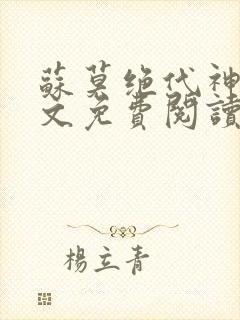 蘇莫绝代神
文免費閱讀
楊立青